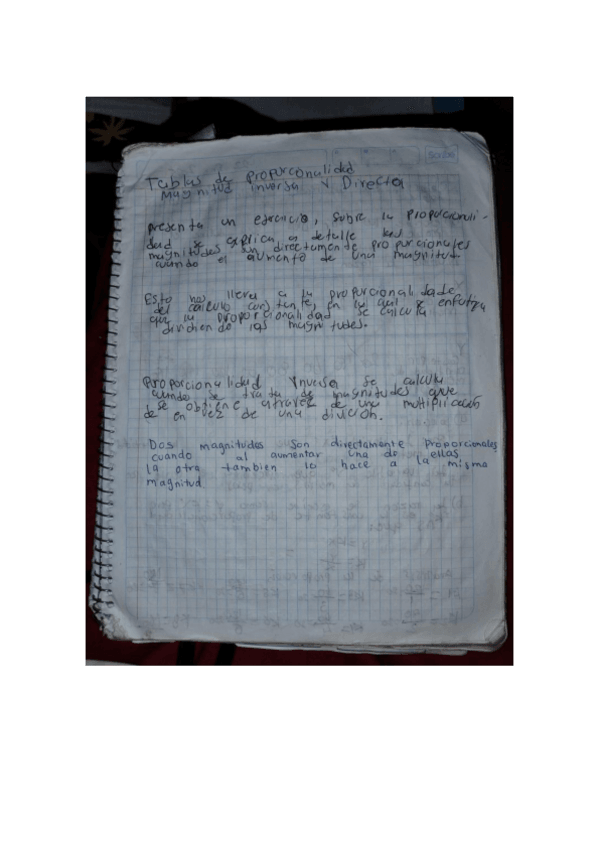 Tablas de proporcionalidad
magnitud inversa y Directa
presenta un ejercicio, sobre la proporcionali-
dad se explica a detalle las
magnitudes son directamente proporcionales
cuando el aumento de una magnitud.
Esto nos lleva a la proporcionalidade
del calculo constante, en la que se enfatiza
que la proporcionalidad se calcula
dividiendo las magnitudes.
proporcionalidad Ynversa se calcula
cuando se trata de magnitudes que
se obtiene atravez de una multiplicación
de en vez de una divición.
Dos magnitudes son directamente proporcionales
cuando al aumentar una de ellas
la otra tambien lo hace a la misma
magnitud